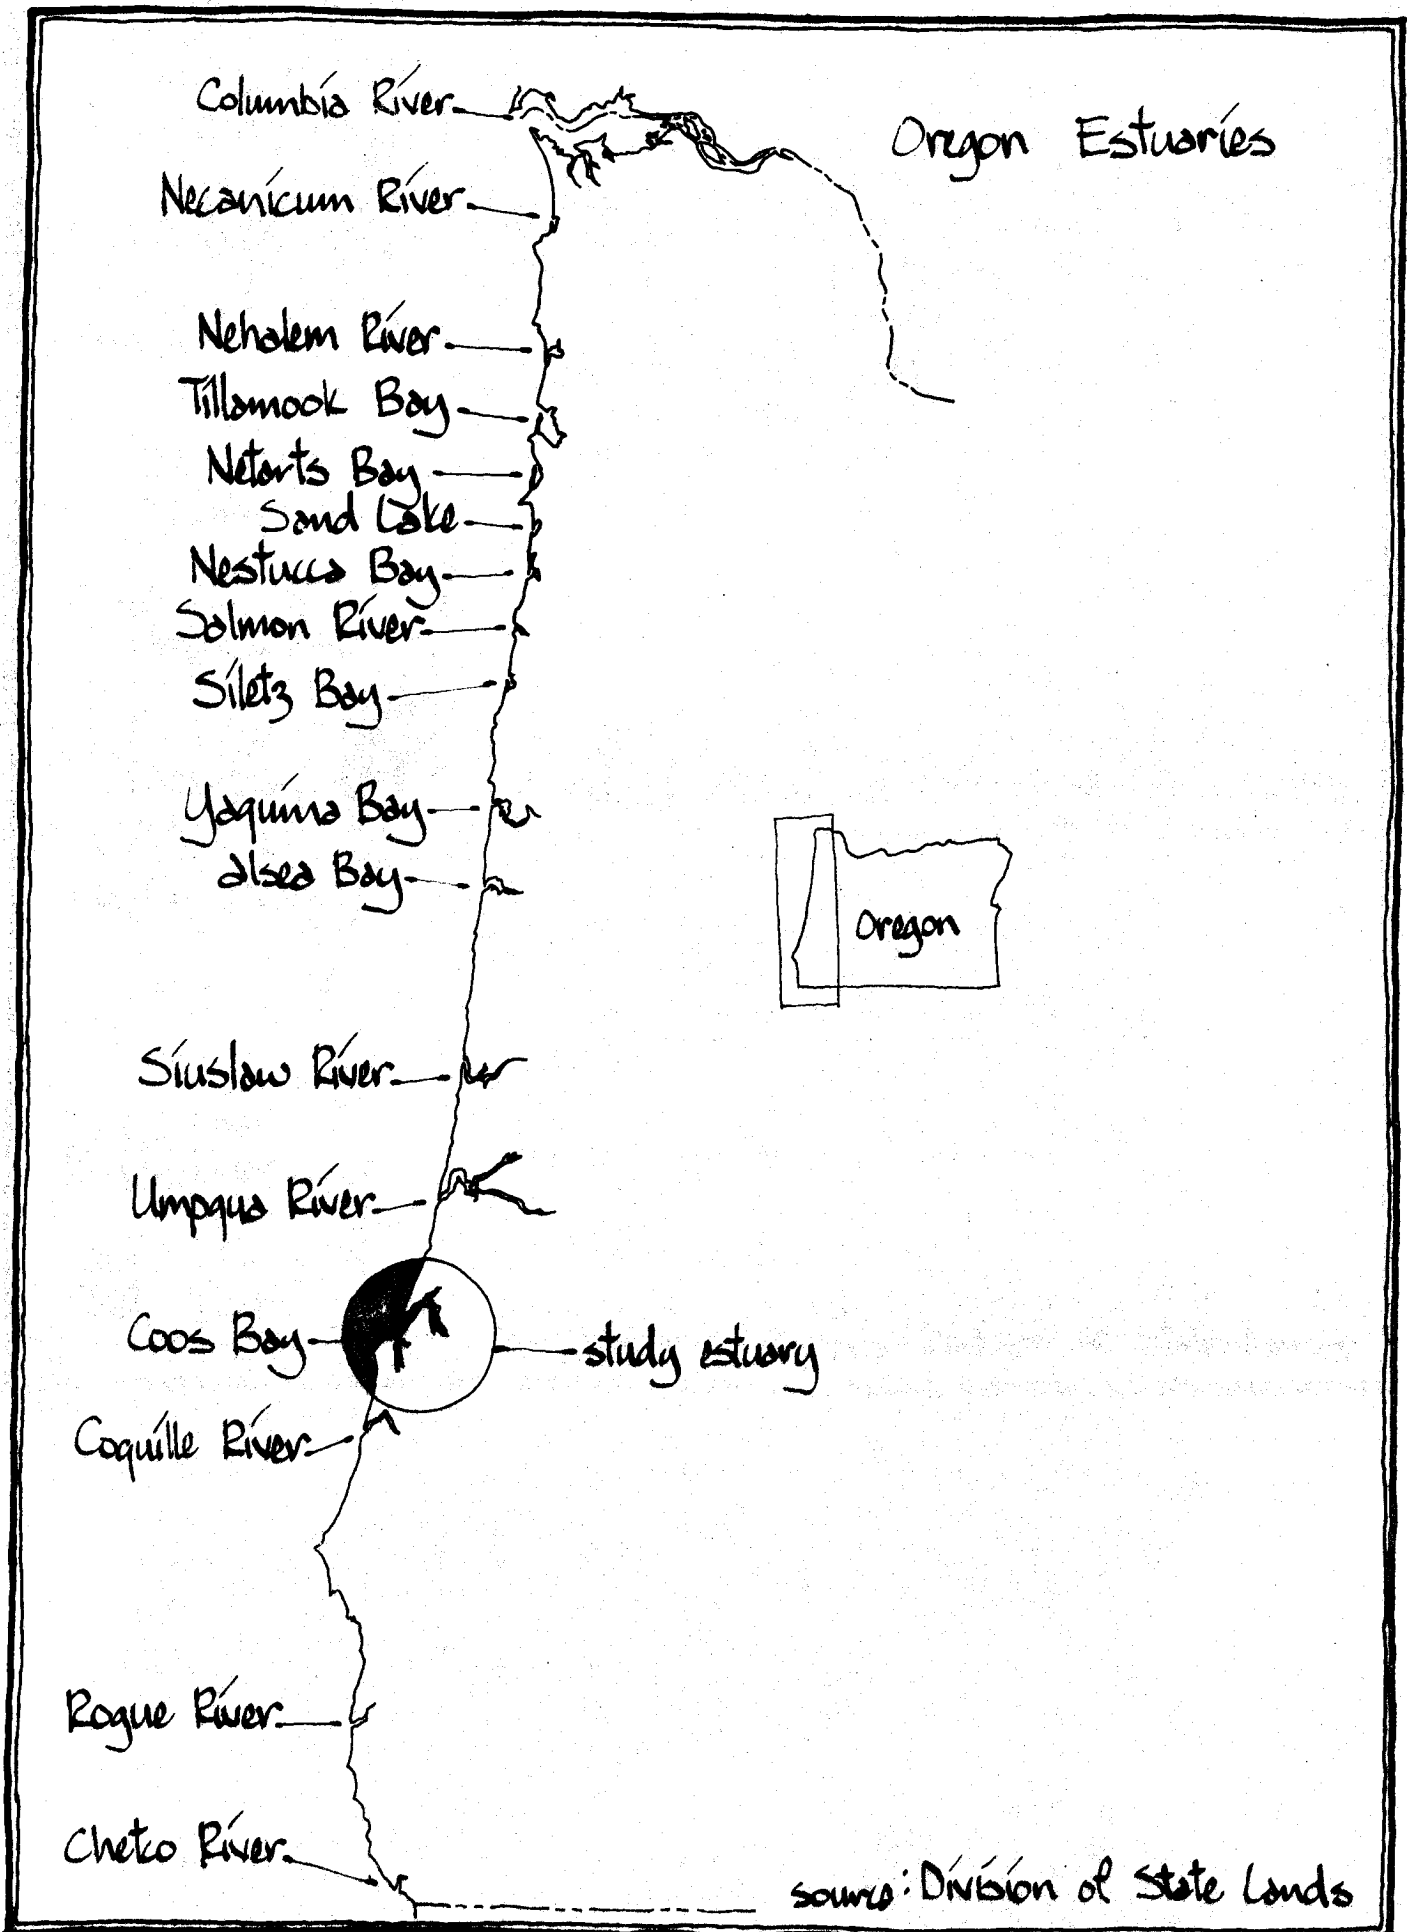 Columbia River
Oregon Estuaries
Necanicum River
Nehalem River
Tillamook Bay
Netarts Bay
Sand Lake
Nestucca Bay
Salmon River
Siletz Bay
Yaquina Bay
alsea Bay
Oregon
Siuslaw River
Umpqua River
Coos Bay
study estuary
Coquille River
Rogue River
Chetco River
source: Division of State Lands